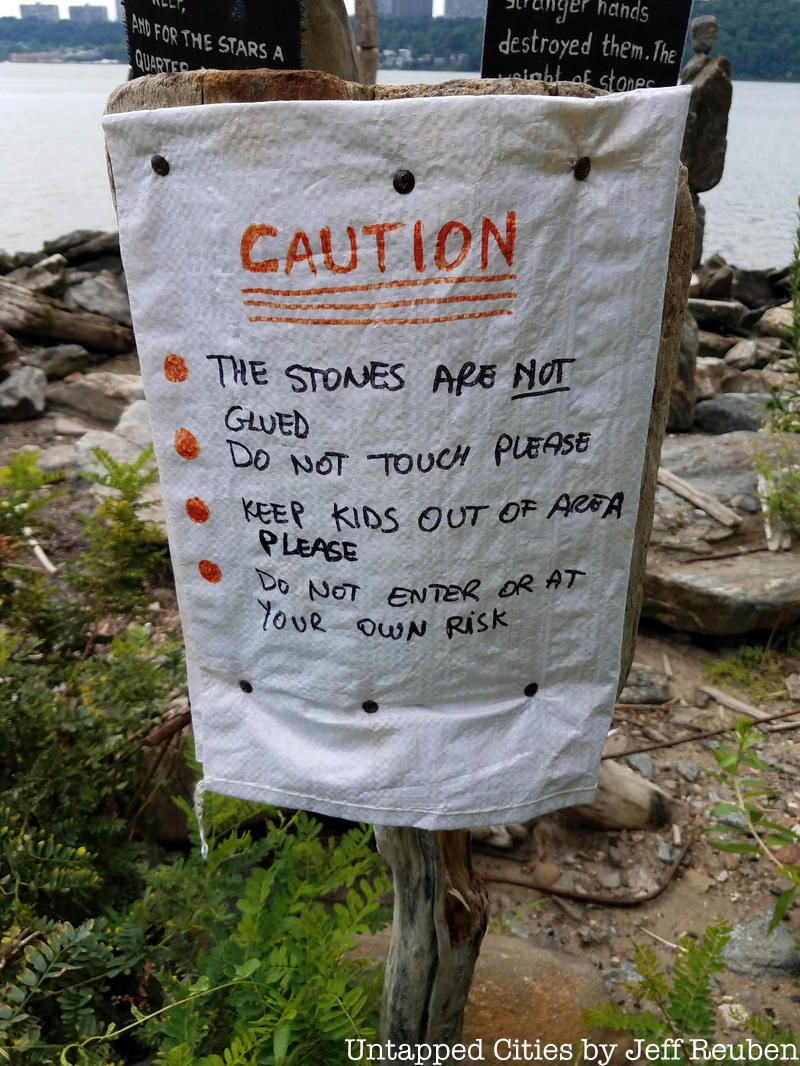 KEEP,
AND FOR THE STARS A
QUARTER
stranger hands
destroyed them. The
weight of stones
CAUTION
THE STONES ARE NOT
GLUED
DO NOT TOUCH PLEASE
KEEP KIDS OUT OF AREA
PLEASE
DO NOT ENTER OR AT
YOUR OWN RISK
Untapped Cities by Jeff Reuben